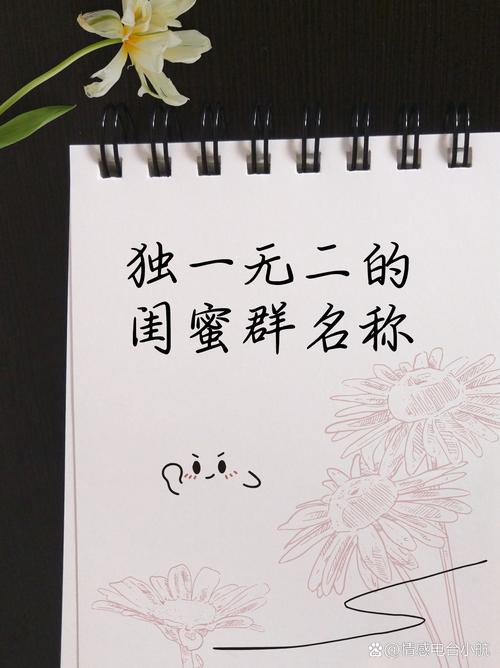 独一无二的
闺蜜群名称
情感电台小航